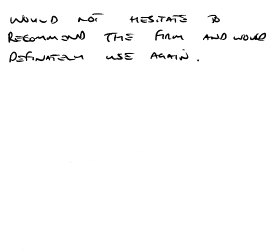 WOULD NOT HESITATE TO
RECOMMEND THE FIRM AND WOULD
DEFINATELY USE AGAIN.